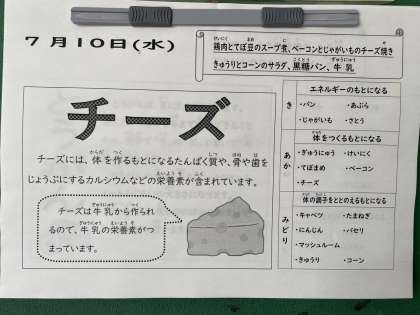 7月10日(水)
鶏肉とてぼ豆のスープ煮、ベーコンとじゃがいものチーズ焼き
きゅうりとコーンのサラダ、黒糖パン、牛乳
チーズ
チーズには、体を作るもとになるたんぱく質や、骨や歯を
じょうぶにするカルシウムなどの栄養素が含まれています。
チーズは牛乳から作られ
るので、牛乳の栄養素がつ
まっています。
き
エネルギーのもとになる
・パン ・あぶら
・じゃがいも ・さとう
あか
体をつくるもとになる
・ぎゅうにゅう ・けいにく
・てぼまめ ・ベーコン
・チーズ
みどり
体の調子をととのえるもとになる
・キャベツ ・たまねぎ
・にんじん ・パセリ
・マッシュルーム
・きゅうり ・コーン